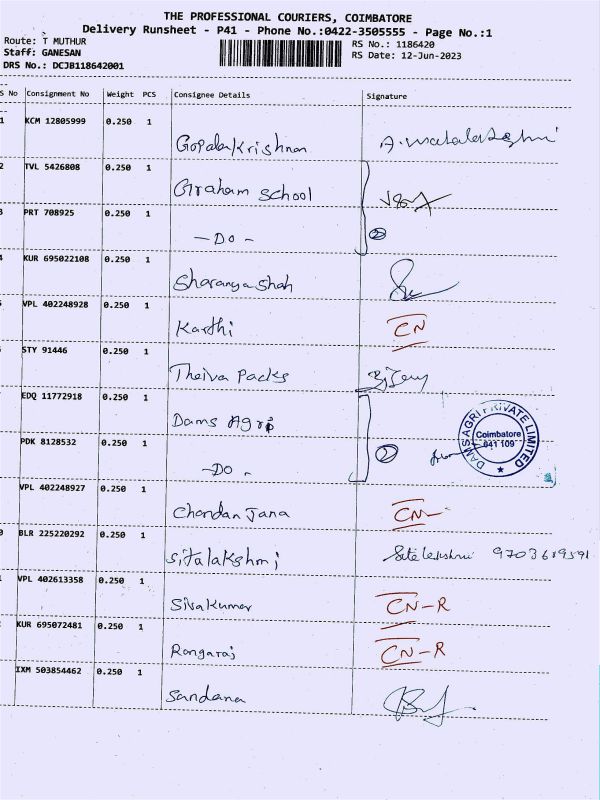 THE PROFESSIONAL COURIERS, COIMBATORE
Delivery Runsheet - P41 - Phone No.:0422-3505555 - Page No.:1
Route: T MUTHUR
RS No.: 1186420
Staff: GANESAN
RS Date: 12-Jun-2023
DRS No.: DCJB118642001
S No Consignment No Weight PCS Consignee Details Signature
1 KCM 12805999 0.250 1
Gopalakrishnan A. Mahalakshmi
2 TVL 5426808 0.250 1
Graham School
3 PRT 708925 0.250 1
- DO - 2
4 KUR 695022108 0.250 1
Sharanya Shah
VPL 402248928 0.250 1
Karthi CN
STY 91446 0.250 1
Theiva Packs
EDQ 11772918 0.250 1
Dams Agri
DAMS AGRI PRIVATE LIMITED
Coimbatore
641 109
PDK 8128532 0.250 1
- DO - 2
VPL 402248927 0.250 1
Chandan Jana CN
BLR 225220292 0.250 1
Sitalakshmi 9703619591
VPL 402613358 0.250 1
Sivakumar CN-R
KUR 695072481 0.250 1
Rangaraj CN-R
IXM 503854462 0.250 1
Sandana